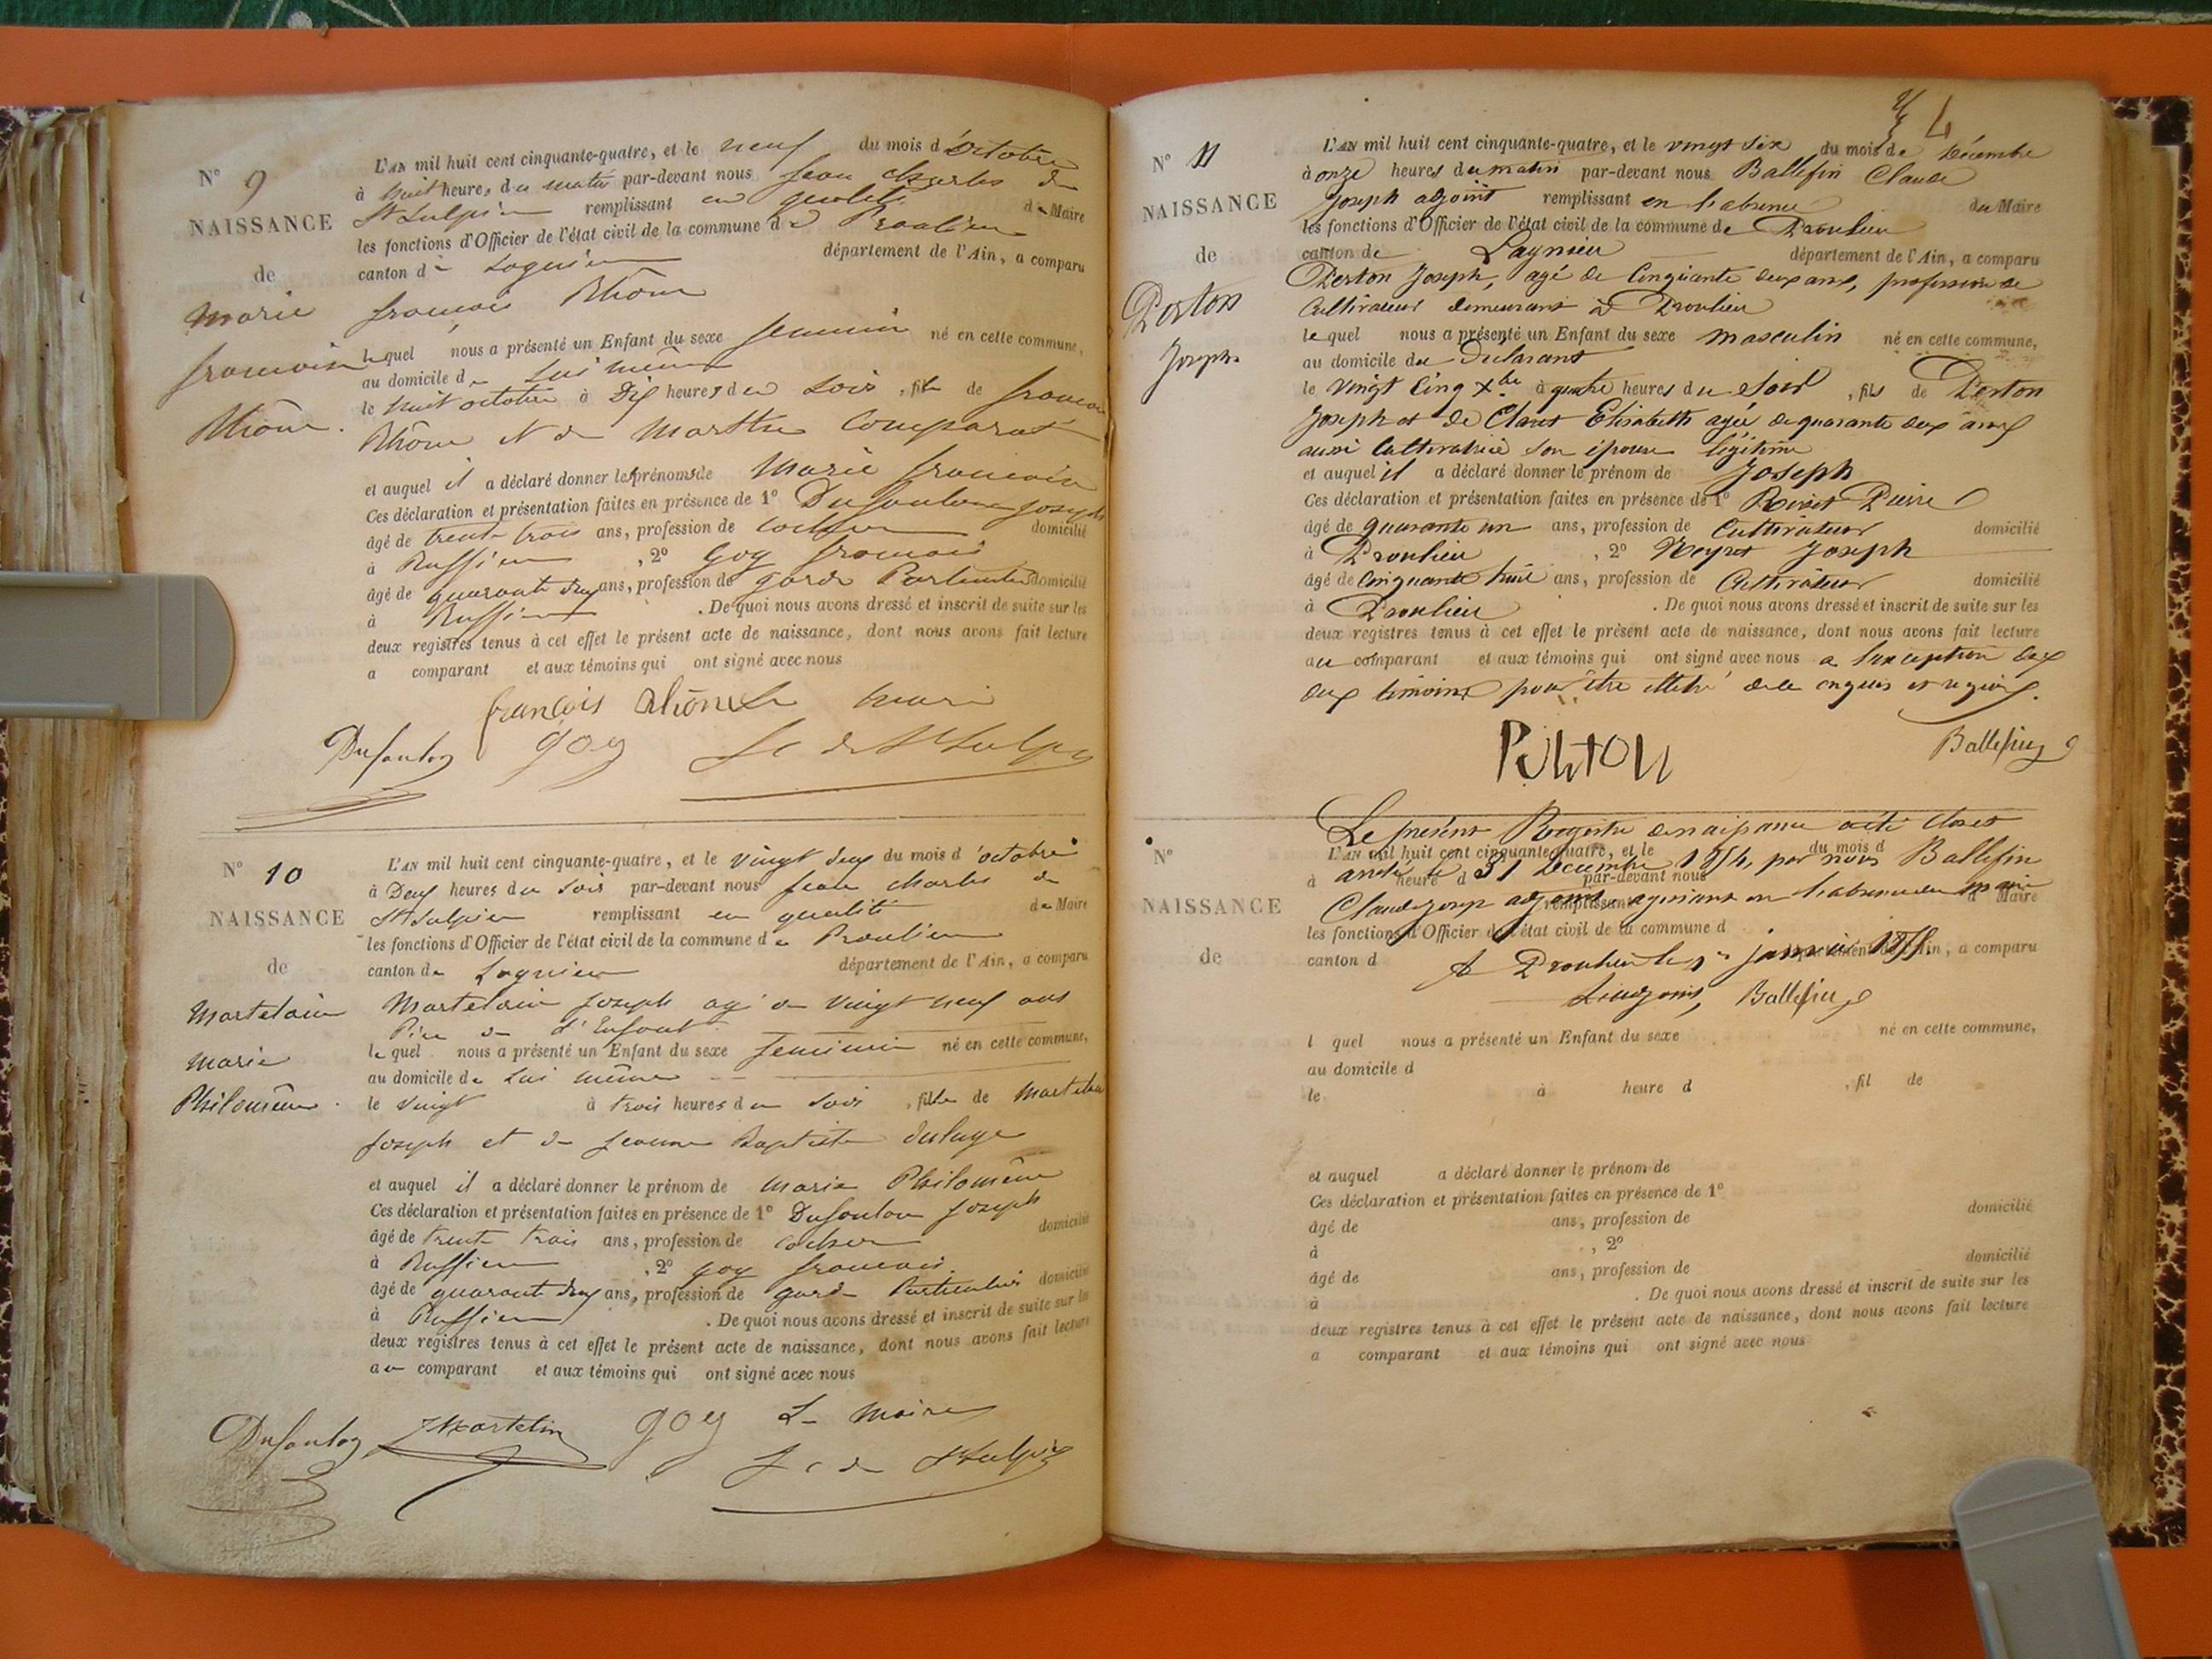 N° 9
NAISSANCE
de
Marie
françoise
Rhône.
L'AN mil huit cent cinquante-quatre, et le neuf du mois d'octobre
à huit heures du matin par-devant nous Jean Charles de
St Sulpice remplissant en qualité de Maire
les fonctions d'Officier de l'état civil de la commune de Proulieu
canton de Lagnieu département de l'Ain, a comparu
françois Rhône
lequel nous a présenté un Enfant du sexe feminin né en cette commune,
au domicile de Lui même
le huit octobre à Dix heures du soir, fille de françois
Rhône et de Marthe Comparat
et auquel il a déclaré donner les prénoms de Marie françoise
Ces déclaration et présentation faites en présence de 1° Dufoulon Joseph
âgé de trente trois ans, profession de cocher domicilié
à Ruffieu, 2° Goy françois
âgé de quarante deux ans, profession de garde Particulier domicilié
à Ruffieu. De quoi nous avons dressé et inscrit de suite sur les
deux registres tenus à cet effet le présent acte de naissance, dont nous avons fait lecture
a comparant et aux témoins qui ont signé avec nous
françois Rhône Le Maire
Dufoulon goy J C de St Sulpice
N° 10
NAISSANCE
de
Martelain
Marie
Philomène.
L'AN mil huit cent cinquante-quatre, et le vingt deux du mois d'octobre
à Deux heures du soir par-devant nous Jean Charles de
St Sulpice remplissant en qualité de Maire
les fonctions d'Officier de l'état civil de la commune de Proulieu
canton de Lagnieu département de l'Ain, a comparu
Martelain Joseph agé de vingt neuf ans
Père de d'Enfant
lequel nous a présenté un Enfant du sexe feminin né en cette commune,
au domicile de Lui même
le vingt à trois heures du soir, fille de Martelain
Joseph et de Jeanne Baptiste
et auquel il a déclaré donner le prénom de Marie Philomène
Ces déclaration et présentation faites en présence de 1° Dufoulon Joseph
âgé de trente trois ans, profession de cocher domicilié
à Ruffieu, 2° goy françois
âgé de quarante deux ans, profession de garde Particulier domicilié
à Ruffieu. De quoi nous avons dressé et inscrit de suite sur les
deux registres tenus à cet effet le présent acte de naissance, dont nous avons fait lecture
au comparant et aux témoins qui ont signé avec nous
Dufoulon J Martelin goy Le Maire
J C de St Sulpice
4
N° 11
NAISSANCE
de
Perton
Joseph
L'AN mil huit cent cinquante-quatre, et le vingt six du mois de Décembre
à onze heures du matin par-devant nous Ballefin Claude
Joseph adjoint remplissant en l'absence du Maire
les fonctions d'Officier de l'état civil de la commune de Proulieu
canton de Lagnieu département de l'Ain, a comparu
Perton Joseph, agé de Cinquante deux ans, profession de
Cultivateur demeurant à Proulieu
lequel nous a présenté un Enfant du sexe masculin né en cette commune,
au domicile du Déclarant
le vingt Cinq Xbre à quatre heures du Soir, fils de Perton
Joseph et de Claret Elisabeth agée de quarante deux ans
aussi Cultivatrice son épouse légitime
et auquel il a déclaré donner le prénom de Joseph
Ces déclaration et présentation faites en présence de 1° Rivet Pierre
âgé de quarante un ans, profession de Cultivateur domicilié
à Proulieu, 2° Neyret Joseph
âgé de Cinquante huit ans, profession de Cultivateur domicilié
à Proulieu. De quoi nous avons dressé et inscrit de suite sur les
deux registres tenus à cet effet le présent acte de naissance, dont nous avons fait lecture
au comparant et aux témoins qui ont signé avec nous a l'exception des
deux témoins pour être illetré de ce enquis et requis.
Perton Ballefin
Le présent Registre de naissance a été Clos et
arrêté le 31 Décembre 1854, par nous Ballefin
Claude Joseph adjoint agissant en l'absence du maire
A Proulieu le 1er janvier 1855.
L'adjoint, Ballefin
N°
NAISSANCE
de
L'AN mil huit cent cinquante-quatre, et le du mois d
à heure d par-devant nous
remplissant d Maire
les fonctions d'Officier de l'état civil de la commune d
canton d département de l'Ain, a comparu
l quel nous a présenté un Enfant du sexe né en cette commune,
au domicile d
le à heure d, fil de
et auquel a déclaré donner le prénom de
Ces déclaration et présentation faites en présence de 1°
âgé de ans, profession de domicilié
à, 2°
âgé de ans, profession de domicilié
à. De quoi nous avons dressé et inscrit de suite sur les
deux registres tenus à cet effet le présent acte de naissance, dont nous avons fait lecture
a comparant et aux témoins qui ont signé avec nous